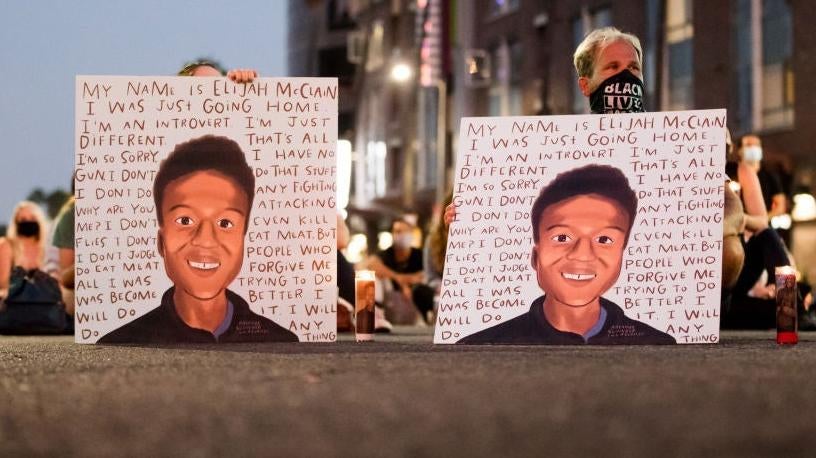 MY NAME IS ELIJAH McCLAIN
I WAS JUST GOING HOME.
I'M AN INTROVERT. I'M JUST
DIFFERENT. THAT'S ALL
I'M SO SORRY I HAVE NO
GUN. I DON'T DO THAT STUFF
I DON'T DO ANY FIGHTING
WHY ARE YOU ATTACKING
ME? I DON'T EVEN KILL
FLIES I DON'T EAT MEAT. BUT
I DON'T JUDGE PEOPLE WHO
DO EAT MEAT FORGIVE ME
ALL I WAS TRYING TO DO
WAS BECOME BETTER I
WILL DO IT. I WILL
DO ANY
THING
MY NAME IS ELIJAH McCLAIN
I WAS JUST GOING HOME.
I'M AN INTROVERT. I'M JUST
DIFFERENT THAT'S ALL
I'M SO SORRY I HAVE NO
GUN. I DON'T DO THAT STUFF
I DON'T DO ANY FIGHTING
WHY ARE YOU ATTACKING
ME? I DON'T EVEN KILL
FLIES I DON'T EAT MEAT. BUT
I DON'T JUDGE PEOPLE WHO
DO EAT MEAT FORGIVE ME.
ALL I WAS TRYING TO DO
WAS BECOME BETTER I
WILL DO IT. I WILL
DO ANY
THING
BLACK
LIVES